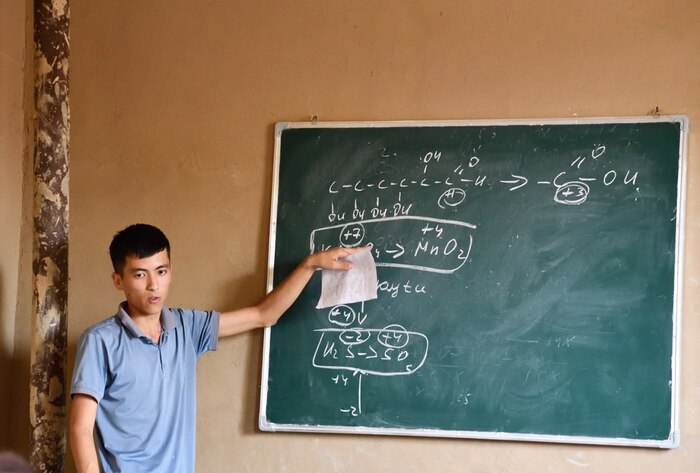 OH O
C-C-C-C-C-C-H → -C-OH
+1 +3
OH OH OH OH
+7 +4
K O4 → MnO2
+4
-2 +4
H2S → SO2
+4
-2